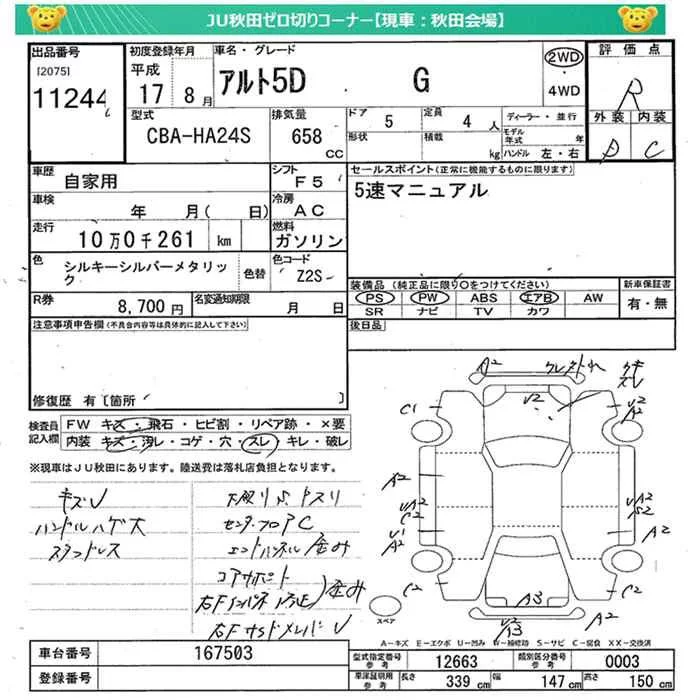 JU秋田ゼロ切りコーナー【現車：秋田会場】
出品番号
[2075]
11244
初度登録年月
平成
17 8月
車名・グレード
アルト5D G
2WD
4WD
評価点
R
外装 内装
D C
型式
CBA-HA24S
排気量
658
CC
ドア 5
形状
定員 4 人
積載 kg
ディーラー・並行
モデル年式 年
ハンドル 左・右
車歴
自家用
シフト
F5
車検
年 月( 日)
冷房
AC
走行
10万0千261 km
燃料
ガソリン
色
シルキーシルバーメタリック
色替
色コード
Z2S
R券
8,700円
名変通知期限
月 日
セールスポイント(正常に機能するものに限ります)
5速マニュアル
装備品(純正品に限り○をつけてください)
PS PW ABS エアB AW
SR ナビ TV カワ
新車保証書
有・無
後日品
注意事項申告欄(不具合内容等は具体的に記入して下さい)
修復歴 有〔箇所 〕
検査員記入欄
FW キズ・飛石・ヒビ割・リペア跡・×要
内装 キズ・汚レ・コゲ・穴・スレ・キレ・破レ
※現車はJU秋田にあります。陸送費は落札店負担となります。
キズU
ハンドルハゲ大
スタッドレス
下廻りS
センターフロアC
エンドパネル歪み
コアサポート
歪み
A2
キズ
スレ
U2
A2
C1
U2
A2
A2
C2
U1
A2
UA2
A2
C2
C2
A3
U2
A3
A2
スペア
A－キズ E－エクボ U－凹み W－補修跡 S－サビ C－腐食 XX－交換済
車台番号
167503
登録番号
型式指定番号
参考
12663
類別区分番号
参考
0003
車庫証明用
参考
長さ 339 cm 幅 147 cm 高さ 150 cm